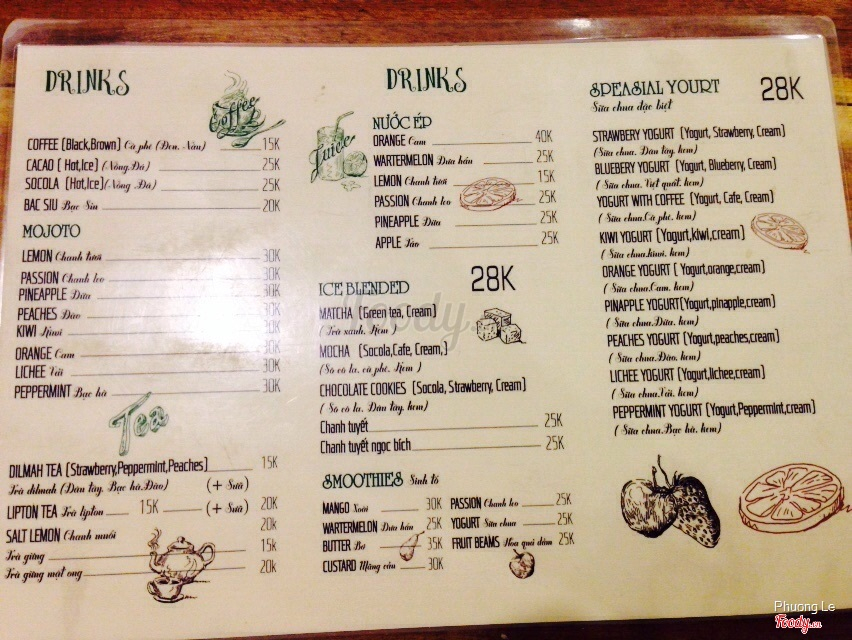 DRINKS
Coffee
COFFEE (Black,Brown) Cà phê (Đen, Nâu) 15K
CACAO ( Hot,Ice) (Nóng,Đá) 25K
SOCOLA (Hot,Ice) (Nóng ,Đá) 25K
BAC SIU Bạc Sỉu 20K
MOJOTO
LEMON Chanh tươi 30K
PASSION Chanh leo 30K
PINEAPPLE Dứa 30K
PEACHES Đào 30K
KIWI Kiwi 30K
ORANGE Cam 30K
LICHEE Vải 30K
PEPPERMINT Bạc hà 30K
Tea
DILMAH TEA (Strawberry,Peppermint,Peaches) 15K
Trà dilmah (Dâu tây, Bạc hà,Đào) (+ Sữa)
LIPTON TEA Trà lipton 15K (+ Sữa) 20K
SALT LEMON Chanh muối 20k
Trà gừng 15k
Trà gừng mật ong 20k
DRINKS
Juice
NƯỚC ÉP
ORANGE Cam 40K
WARTERMELON Dưa hấu 25K
LEMON Chanh tươi 15K
PASSION Chanh leo 25K
PINEAPPLE Dứa 25K
APPLE Táo 25K
ICE BLENDED 28K
MATCHA (Green tea, Cream)
(Trà xanh, Kem )
MOCHA (Socola,Cafe, Cream,)
(Sô cô la, cà phê, Kem )
CHOCOLATE COOKIES (Socola, Strawberry, Cream)
(Sô cô la, Dâu tây, kem)
Chanh tuyết 25K
Chanh tuyết ngọc bích 25K
SMOOTHIES Sinh tố
MANGO Xoài 30K PASSION Chanh leo 25K
WARTERMELON Dưa hấu 25K YOGURT Sữa chua 25K
BUTTER Bơ 35K FRUIT BEAMS Hoa quả dầm 25K
CUSTARD Mãng cầu 30K
SPEASIAL YOURT 28K
Sữa chua đặc biệt
STRAWBERY YOGURT (Yogurt, Strawberry, Cream)
(Sữa chua, Dâu tây, kem)
BLUEBERY YOGURT (Yogurt, Blueberry, Cream)
( Sữa chua, Việt quất, kem)
YOGURT WITH COFFEE (Yogurt, Cafe, Cream)
( Sữa chua,Cà phê, kem)
KIWI YOGURT (Yogurt,kiwi,cream)
( Sữa chua,kiwi, kem)
ORANGE YOGURT ( Yogurt,orange,cream)
( Sữa chua,Cam, kem)
PINAPPLE YOGURT(Yogurt,pinapple,cream)
( Sữa chua,Dứa, kem)
PEACHES YOGURT (Yogurt,peaches,cream)
( Sữa chua,Đào, kem)
LICHEE YOGURT (Yogurt,lichee,cream)
( Sữa chua,Vải, kem)
PEPPERMINT YOGURT (Yogurt,Peppermint,cream)
( Sữa chua,Bạc hà, kem)
Foody
Phuong Le
Foody.vn